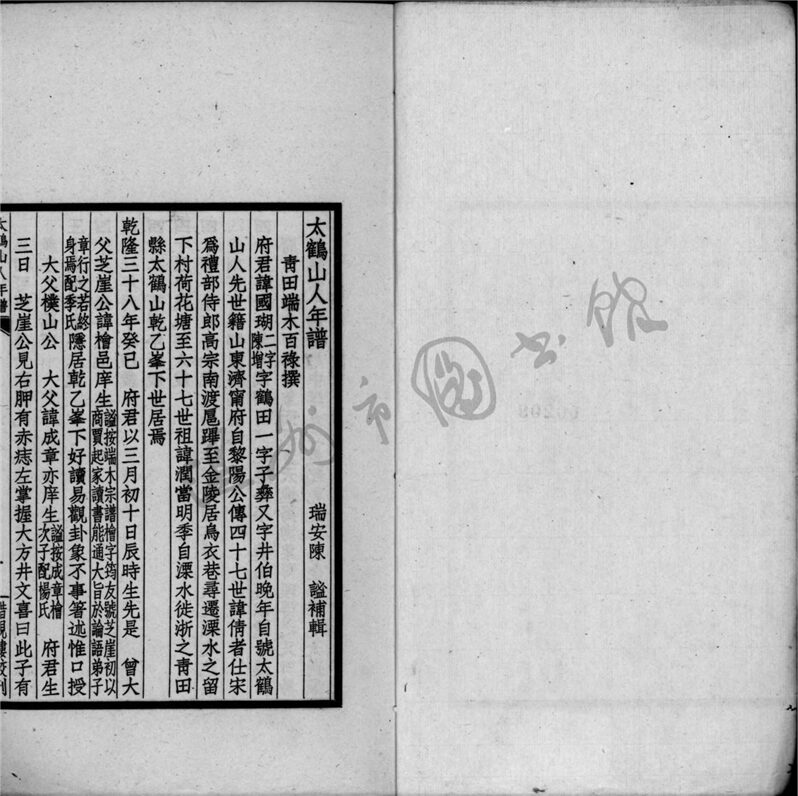 太鶴山人年譜
青田端木百祿撰　瑞安陳　謐補輯
府君諱國瑚二字陳增字鶴田一字子彝又字井伯晚年自號太鶴
山人先世籍山東濟甯府自黎陽公傳四十七世諱倩者仕宋
爲禮部侍郎高宗南渡扈蹕至金陵居烏衣巷尋遷溧水之留
下村荷花塘至六十七世祖諱潤當明季自溧水徙浙之青田
縣太鶴山乾乙峯下世居焉
乾隆三十八年癸巳　府君以三月初十日辰時生先是　曾大
父芝崖公諱檜邑庠生謐按端木宗譜檜字筠友號芝崖初以商賈起家讀書能通大旨於論語弟子
章行之若終身焉配季氏隱居乾乙峯下好讀易觀卦象不事箸述惟口授
大父樸山公　大父諱成章亦庠生謐按成章檜次子配楊氏　府君生
三日　芝崖公見右胛有赤痣左掌握大方井文喜曰此子有
太鶴山人年譜
一惜硯樓校刊
市圖書館